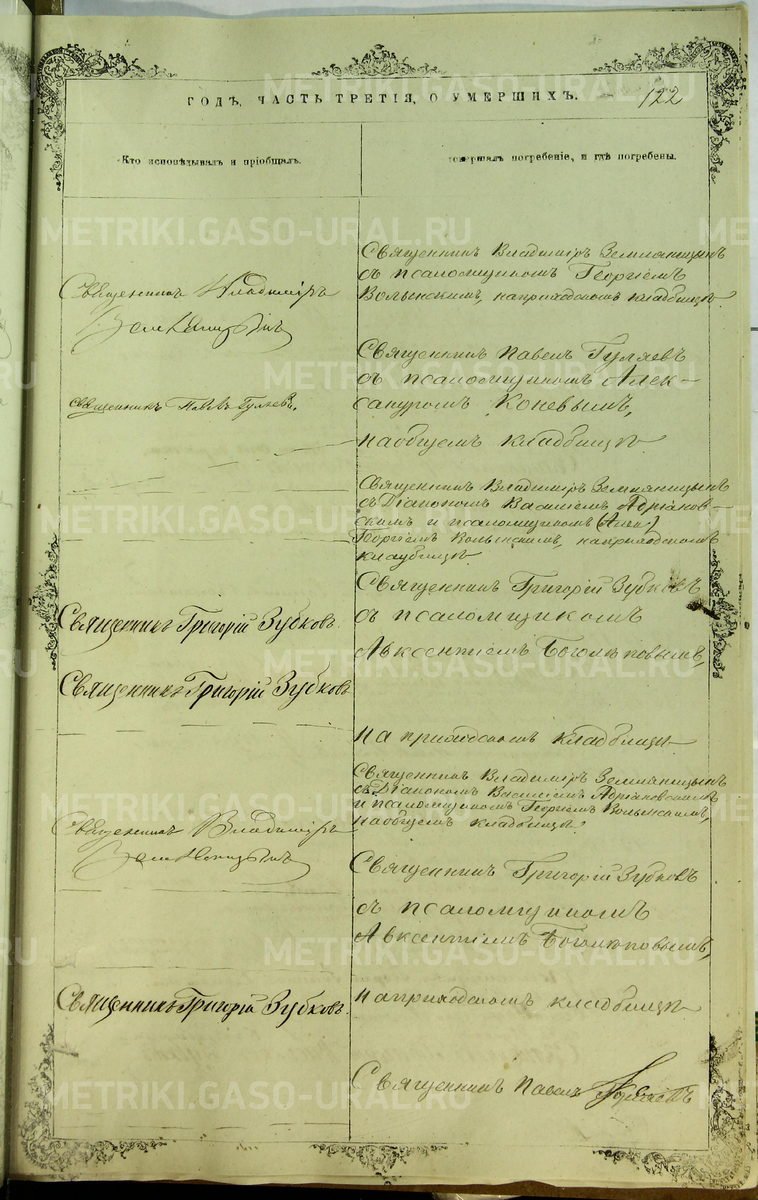 ГОДЪ, ЧАСТЬ ТРЕТІЯ, О УМЕРШИХЪ.
122
Кто исповѣдывалъ и пріобщалъ.
совершалъ погребеніе, и гдѣ погребены.
Священникъ Владиміръ Земляницынъ
съ псаломщикомъ Георгіемъ
Волынскимъ, на приходскомъ кладбищѣ
Священникъ Владиміръ
Земляницынъ
Священникъ Павелъ Гуляевъ
съ псаломщикомъ Алек-
сандромъ Коневымъ,
на общемъ кладбищѣ
Священникъ Павелъ Гуляевъ.
Священникъ Владиміръ Земляницынъ
съ Діакономъ Василіемъ Адріанов-
скимъ и псаломщикомъ (Алек)
Георгіемъ Волынскимъ, на приходскомъ
кладбищѣ
Священникъ Григорій Зубковъ
съ псаломщикомъ
Авксентіемъ Боголюповымъ,
на приходскомъ кладбищѣ
Священникъ Григорій Зубковъ
Священникъ Григорій Зубковъ
Священникъ Владиміръ Земляницынъ
съ Діакономъ Василіемъ Адріановскимъ
и псаломщикомъ Георгіемъ Волынскимъ,
на общемъ кладбищѣ
Священникъ Владиміръ
Земляницынъ
Священникъ Григорій Зубковъ
съ псаломщикомъ
Авксентіемъ Боголюповымъ,
на приходскомъ кладбищѣ
Священникъ Григорій Зубковъ
Священникъ Павелъ
METRIKI.GASO-URAL.RU